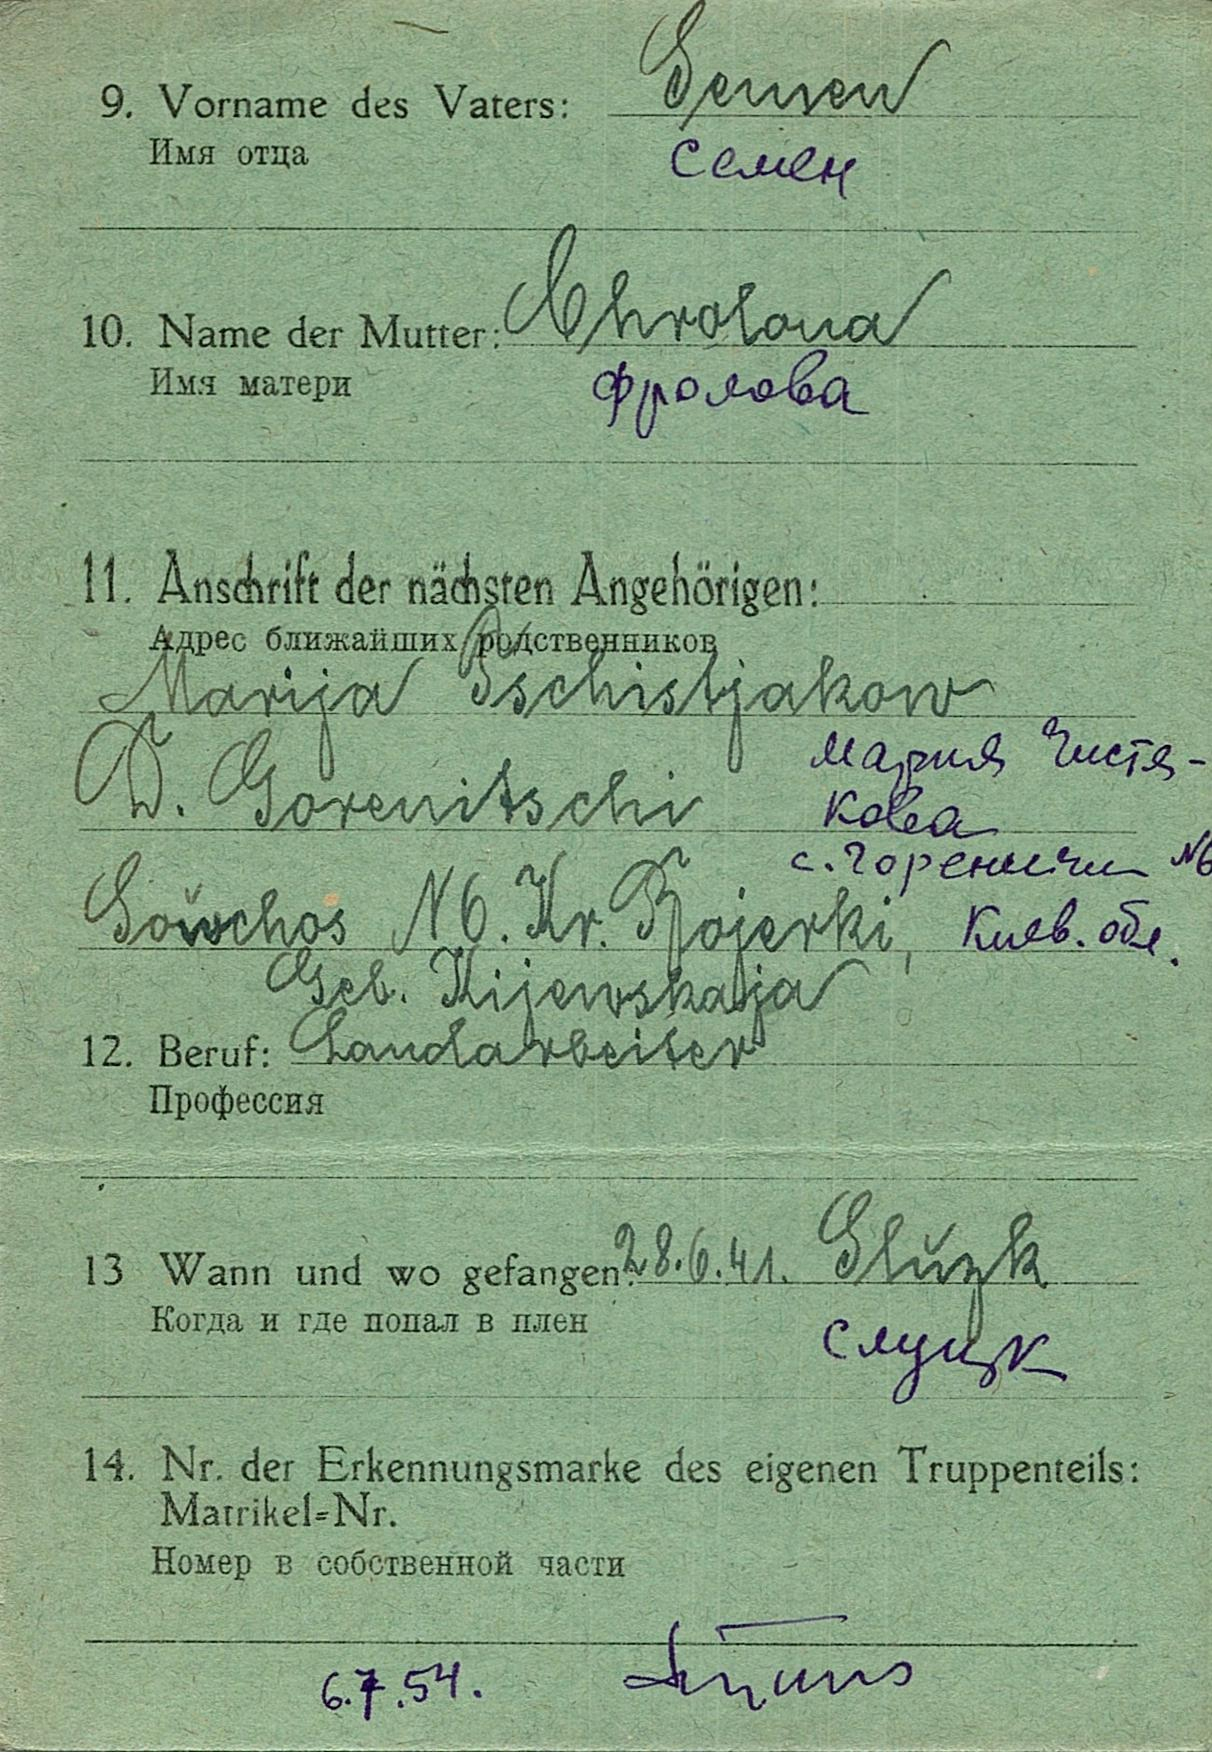 9. Vorname des Vaters: Semen
Имя отца
Семен
10. Name der Mutter: Chrolowa
Имя матери
Фролова
11. Anschrift der nächsten Angehörigen:
Адрес ближайших родственников
Marija Tschistjakow
D. Gorenitschi
Мария Чистя-
кова
с. Гореничи N6
Sowchos N6. Kr. Bojerki,
Киев. обл.
Geb. Kijewskaja
12. Beruf: Landarbeiter
Профессия
13 Wann und wo gefangen: 28.6.41. Sluzk
Когда и где попал в плен
Слуцк
14. Nr. der Erkennungsmarke des eigenen Truppenteils:
Matrikel=Nr.
Номер в собственной части
6.7.54.